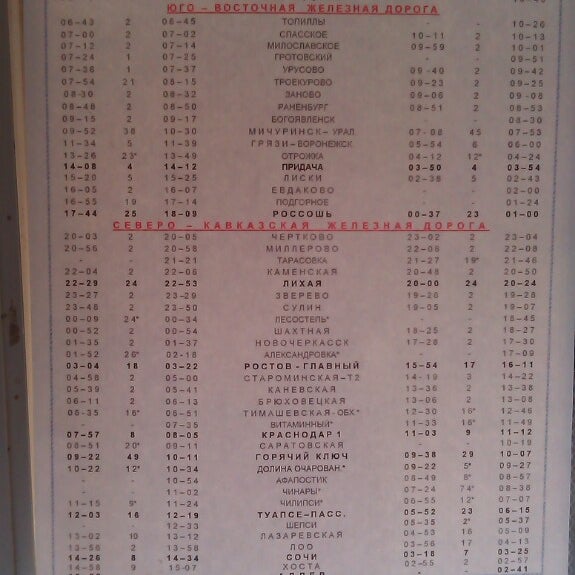 ЮГО – ВОСТОЧНАЯ ЖЕЛЕЗНАЯ ДОРОГА
06-43 2 06-45 ТОПИЛЛЫ - - 10-26
07-00 2 07-02 СПАССКОЕ 10-11 2 10-13
07-12 2 07-14 МИЛОСЛАВСКОЕ 09-59 2 10-01
07-24 1 07-25 ГРОТОВСКИЙ - - 09-51
07-36 1 07-37 УРУСОВО 09-40 2 09-42
07-54 21 08-15 ТРОЕКУРОВО 09-23 2 09-25
08-30 2 08-32 ЗАНОВО 09-06 2 09-08
08-48 2 08-50 РАНЕНБУРГ 08-51 2 08-53
09-15 2 09-17 БОГОЯВЛЕНСК - - 08-30
09-52 38 10-30 МИЧУРИНСК– УРАЛ 07-08 45 07-53
11-34 5 11-39 ГРЯЗИ–ВОРОНЕЖСК 05-54 6 06-00
13-26 23* 13-49 ОТРОЖКА 04-12 12* 04-24
14-08 4 14-12 ПРИДАЧА 03-50 4 03-54
15-20 5 15-25 ЛИСКИ 02-38 5 02-43
16-05 2 16-07 ЕВДАКОВО - - 02-00
16-55 19 17-14 ПОДГОРНОЕ - - 01-24
17-44 25 18-09 РОССОШЬ 00-37 23 01-00
СЕВЕРО – КАВКАЗСКАЯ ЖЕЛЕЗНАЯ ДОРОГА
20-03 2 20-05 ЧЕРТКОВО 23-02 2 23-04
20-56 2 20-58 МИЛЛЕРОВО 22-06 2 22-08
- - 21-21 ТАРАСОВКА 21-27 19* 21-46
22-04 2 22-06 КАМЕНСКАЯ 20-48 2 20-50
22-29 24 22-53 ЛИХАЯ 20-00 24 20-24
23-27 2 23-29 ЗВЕРЕВО 19-26 2 19-28
23-48 2 23-50 СУЛИН 19-05 2 19-07
00-09 24* 00-34 ЛЕСОСТЕПЬ* - - 18-45
00-52 2 00-54 ШАХТНАЯ 18-25 2 18-27
01-35 2 01-37 НОВОЧЕРКАССК 17-28 2 17-30
01-52 26* 02-18 АЛЕКСАНДРОВКА* - - 17-09
03-04 18 03-22 РОСТОВ–ГЛАВНЫЙ 15-54 17 16-11
04-58 2 05-00 СТАРОМИНСКАЯ–Т2 14-19 3 14-22
05-39 2 05-41 КАНЕВСКАЯ 13-36 2 13-38
06-11 2 06-13 БРЮХОВЕЦКАЯ 13-06 2 13-08
06-35 16* 06-51 ТИМАШЕВСКАЯ-ОБХ.* 12-30 16* 12-46
- - 07-35 ВИТАМИННЫЙ* 11-33 16* 11-49
07-57 8 08-05 КРАСНОДАР 1 11-03 9 11-12
08-51 20* 09-11 САРАТОВСКАЯ - - 10-19
09-22 49 10-11 ГОРЯЧИЙ КЛЮЧ 09-38 29 10-07
10-22 12* 10-34 ДОЛИНА ОЧАРОВАН.* 09-22 5* 09-27
- - 10-54 АФАПОСТИК 08-49 8* 08-57
- - 11-02 ЧИНАРЫ* 07-24 74* 08-38
11-15 9* 11-24 ЧИЛИПСИ* 06-55 12* 07-07
12-03 16 12-19 ТУАПСЕ–ПАСС. 05-52 23 06-15
12-33 ШЕПСИ 05-35 2* 05-37
13-02 10 13-12 ЛАЗАРЕВСКАЯ 03-56 17 04-13
13-56 2 13-58 ЛОО - - 03-39
14-26 8 14-34 СОЧИ 03-18 7 03-25
14-58 9 15-07 ХОСТА 02-55 2 02-57
02-41